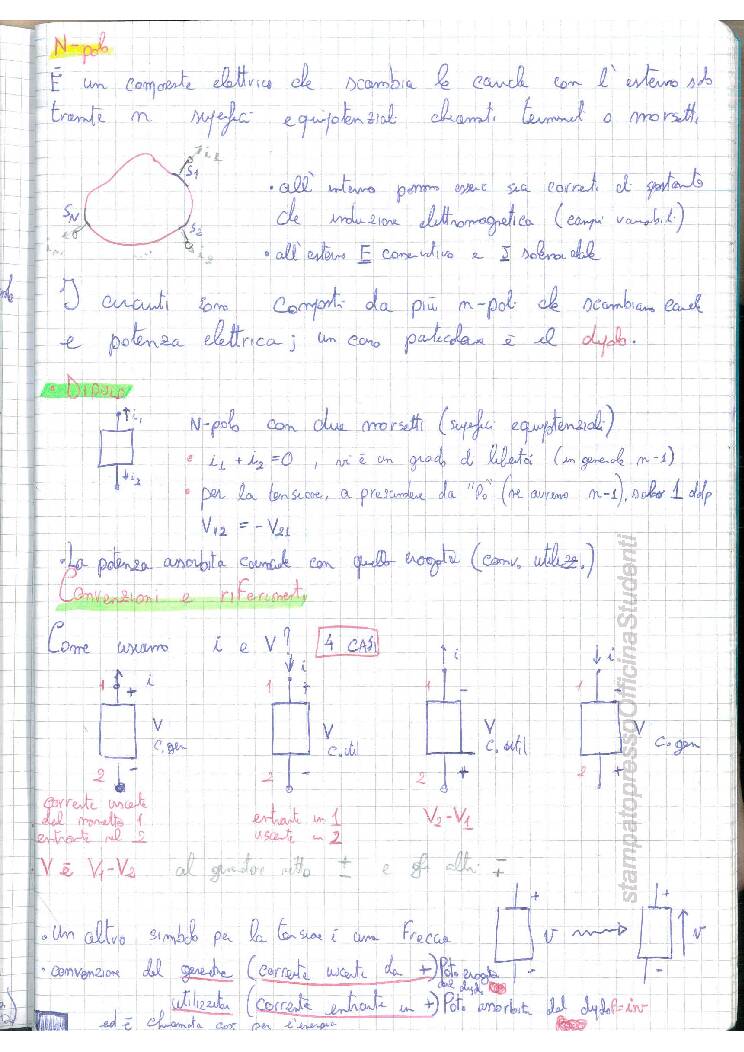 N-polo
È un componente elettrico che scambia le cariche con l'esterno solo
tramite n superfici equipotenziali chiamati terminali o morsetti.
i1
S1
SN
S2
i2
in
• all'interno possono esserci sia correnti di spostamento
che induzione elettromagnetica (campi variabili)
• all'esterno E conservativo e J solenoidale
I circuiti sono composti da più n-poli che scambiano cariche
e potenza elettrica; un caso particolare è il dipolo.
• DIPOLO
i1
i2
N-polo con due morsetti (superfici equipotenziali)
• i1 + i2 = 0 , vi è un grado di libertà (in generale n-1)
• per la tensione, a prescindere da "P0" (ne avremo n-1), solo 1 ddp
V12 = - V21
• La potenza assorbita coincide con quella erogata (conv. utilizz.)
Convenzioni e riferimenti
Come usiamo i e V? 4 CASI
1 i + V C.gen 2 -
1 i + V C.util 2 -
1 i - V C.util 2 +
i 1 - V C.gen 2 +
corrente uscente
dal morsetto 1
entrante nel 2
entrante in 1
uscente in 2
V2-V1
V è V1-V2 al quadretto ± e gli altri ∓
• Un altro simbolo per la tensione è una Freccia
+ v - + v -
• convenzione del generatore (corrente uscente da +) Pot. erogata
dal dipolo
utilizzatore (corrente entrante in +) Pot. assorbita dal dipolo P=iv
ed è chiamata così per l'energia
stampatopressoOfficinaStudenti